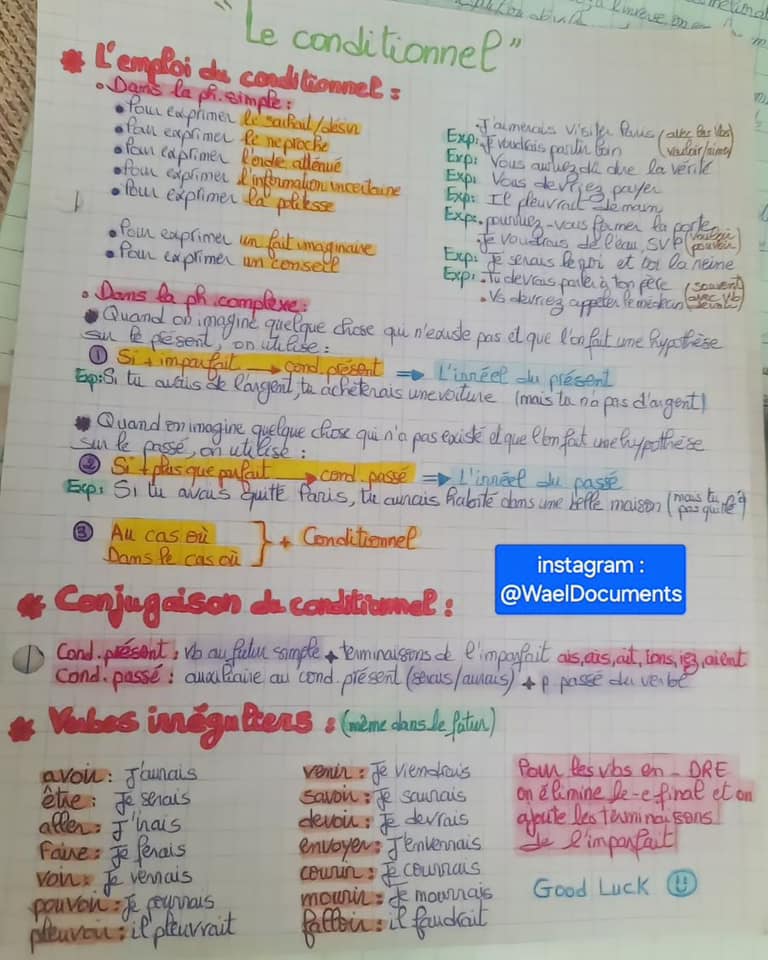 "Le conditionnel"
* L'emploi du conditionnel :
• Dans la ph. simple :
• Pour exprimer le souhait/désir
• Pour exprimer le reproche
• Pour exprimer l'ordre atténué
• Pour exprimer l'information incertaine
• Pour exprimer la politesse
• Pour exprimer un fait imaginaire
• Pour exprimer un conseil
J'aimerais visiter Paris (avec les vbs
Exp: Je voudrais partir loin vouloir/aimer)
Exp: Vous auriez dû dire la vérité
Exp: Vous devriez payer
Exp: Il pleuvrait demain
Exp: pourriez-vous fermer la porte
Je voudrais de l'eau SVP (vouloir pouvoir)
Exp: Je serais le roi et toi la reine
Exp: Tu devrais parler à ton père (souvent
• Vs devriez appeler le médecin avec vb devoir)
• Dans la ph. complexe :
• Quand on imagine quelque chose qui n'existe pas et que l'on fait une hypothèse
sur le présent, on utilise :
① Si + imparfait → cond. présent ⇒ L'irréel du présent
Exp: Si tu avais de l'argent, tu achèterais une voiture (mais tu n'a pas d'argent)
* Quand on imagine quelque chose qui n'a pas existé et que l'on fait une hypothèse
sur le passé, on utilise :
② Si + plus que parfait → cond. passé ⇒ L'irréel du passé
Exp: Si tu avais quitté Paris, tu aurais habité dans une belle maison (mais tu pas quitté)
③ Au cas où
Dans le cas où } + Conditionnel
instagram :
@WaelDocuments
* Conjugaison du conditionnel :
Cond. présent : vb au futur simple + terminaisons de l'imparfait ais, ais, ait, ions, iez, aient
Cond. passé : auxiliaire au cond. présent (serais/aurais) + p. passé du verbe
* Verbes irréguliers : (même dans le futur)
avoir : J'aurais
être : Je serais
aller : J'irais
Faire : Je ferais
voir : Je verrais
pouvoir : Je pourrais
pleuvoir : il pleuvrait
venir : Je viendrais
savoir : Je saurais
devoir : Je devrais
envoyer : J'enverrais
courir : Je courrais
mourir : Je mourrais
falloir : il faudrait
Pour les vbs en - DRE
on élimine le -e final et on
ajoute les terminaisons
de l'imparfait
Good Luck